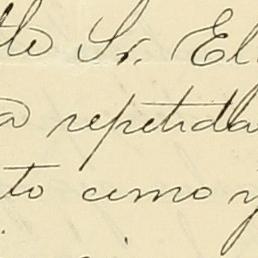 Sr. El
a repetida
to como y